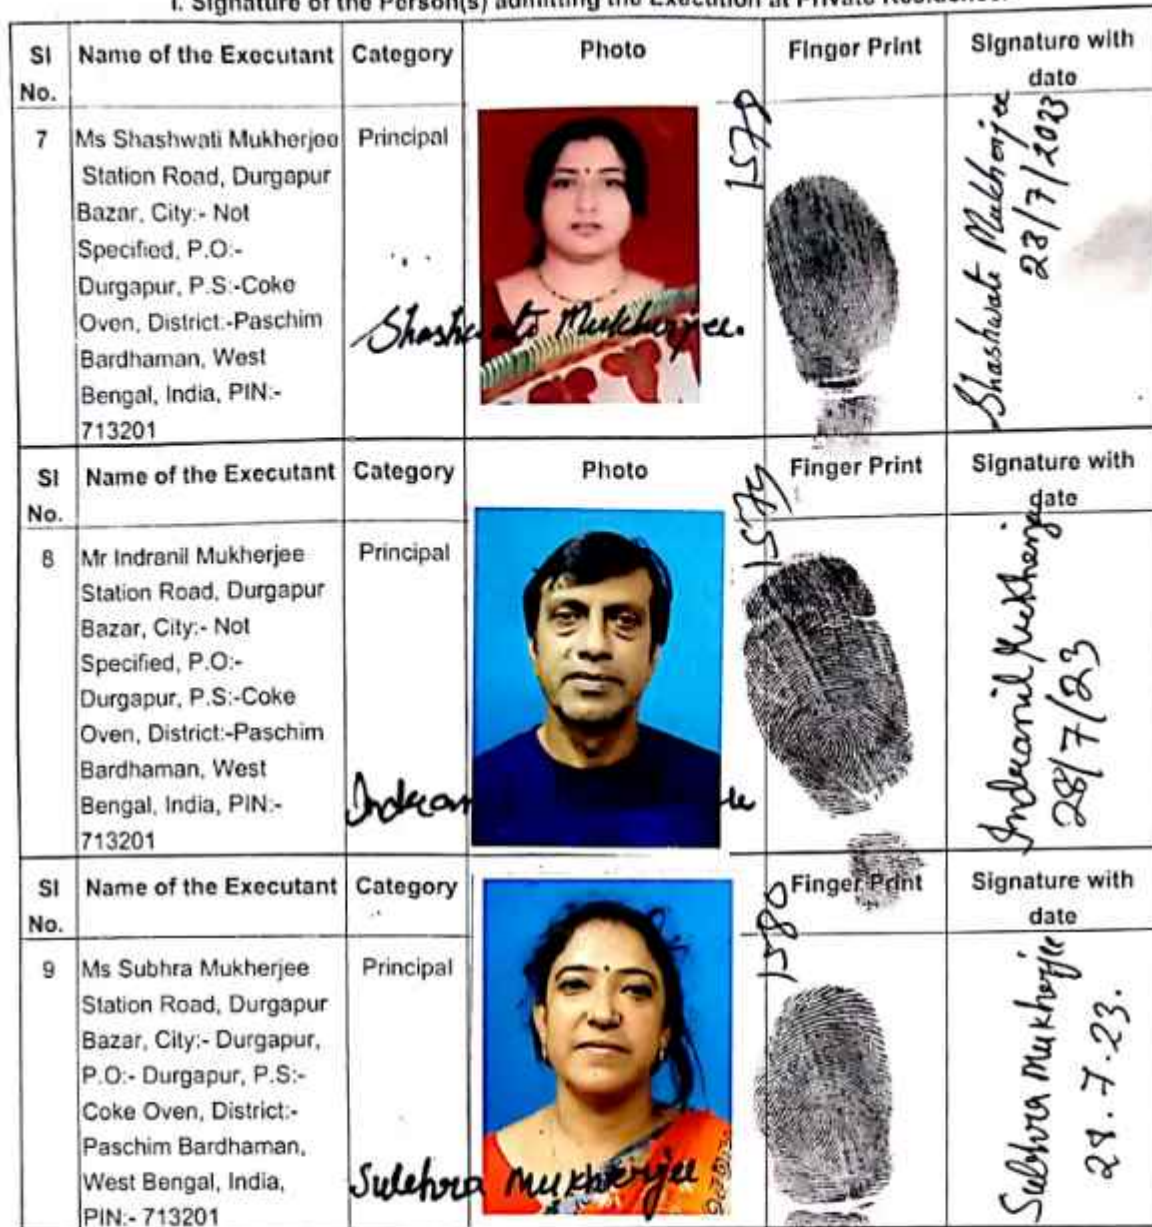 I. Signature of the Person(s) admitting the Execution at Private Residence.
SI No. Name of the Executant Category Photo Finger Print Signature with date
7 Ms Shashwati Mukherjee Principal
Station Road, Durgapur
Bazar, City:- Not
Specified, P.O:-
Durgapur, P.S:-Coke
Oven, District:-Paschim
Bardhaman, West
Bengal, India, PIN:-
713201
1578
Shashwati Mukherjee.
Shashwati Mukherjee
28/7/2023
SI No. Name of the Executant Category Photo Finger Print Signature with date
8 Mr Indranil Mukherjee Principal
Station Road, Durgapur
Bazar, City:- Not
Specified, P.O:-
Durgapur, P.S:-Coke
Oven, District:-Paschim
Bardhaman, West
Bengal, India, PIN:-
713201
1579
Indranil Mukherjee
28/7/23
SI No. Name of the Executant Category Finger Print Signature with date
9 Ms Subhra Mukherjee Principal
Station Road, Durgapur
Bazar, City:- Durgapur,
P.O:- Durgapur, P.S:-
Coke Oven, District:-
Paschim Bardhaman,
West Bengal, India,
PIN:- 713201
1580
Subhra Mukherjee
Subhra Mukherjee
28.7.23.